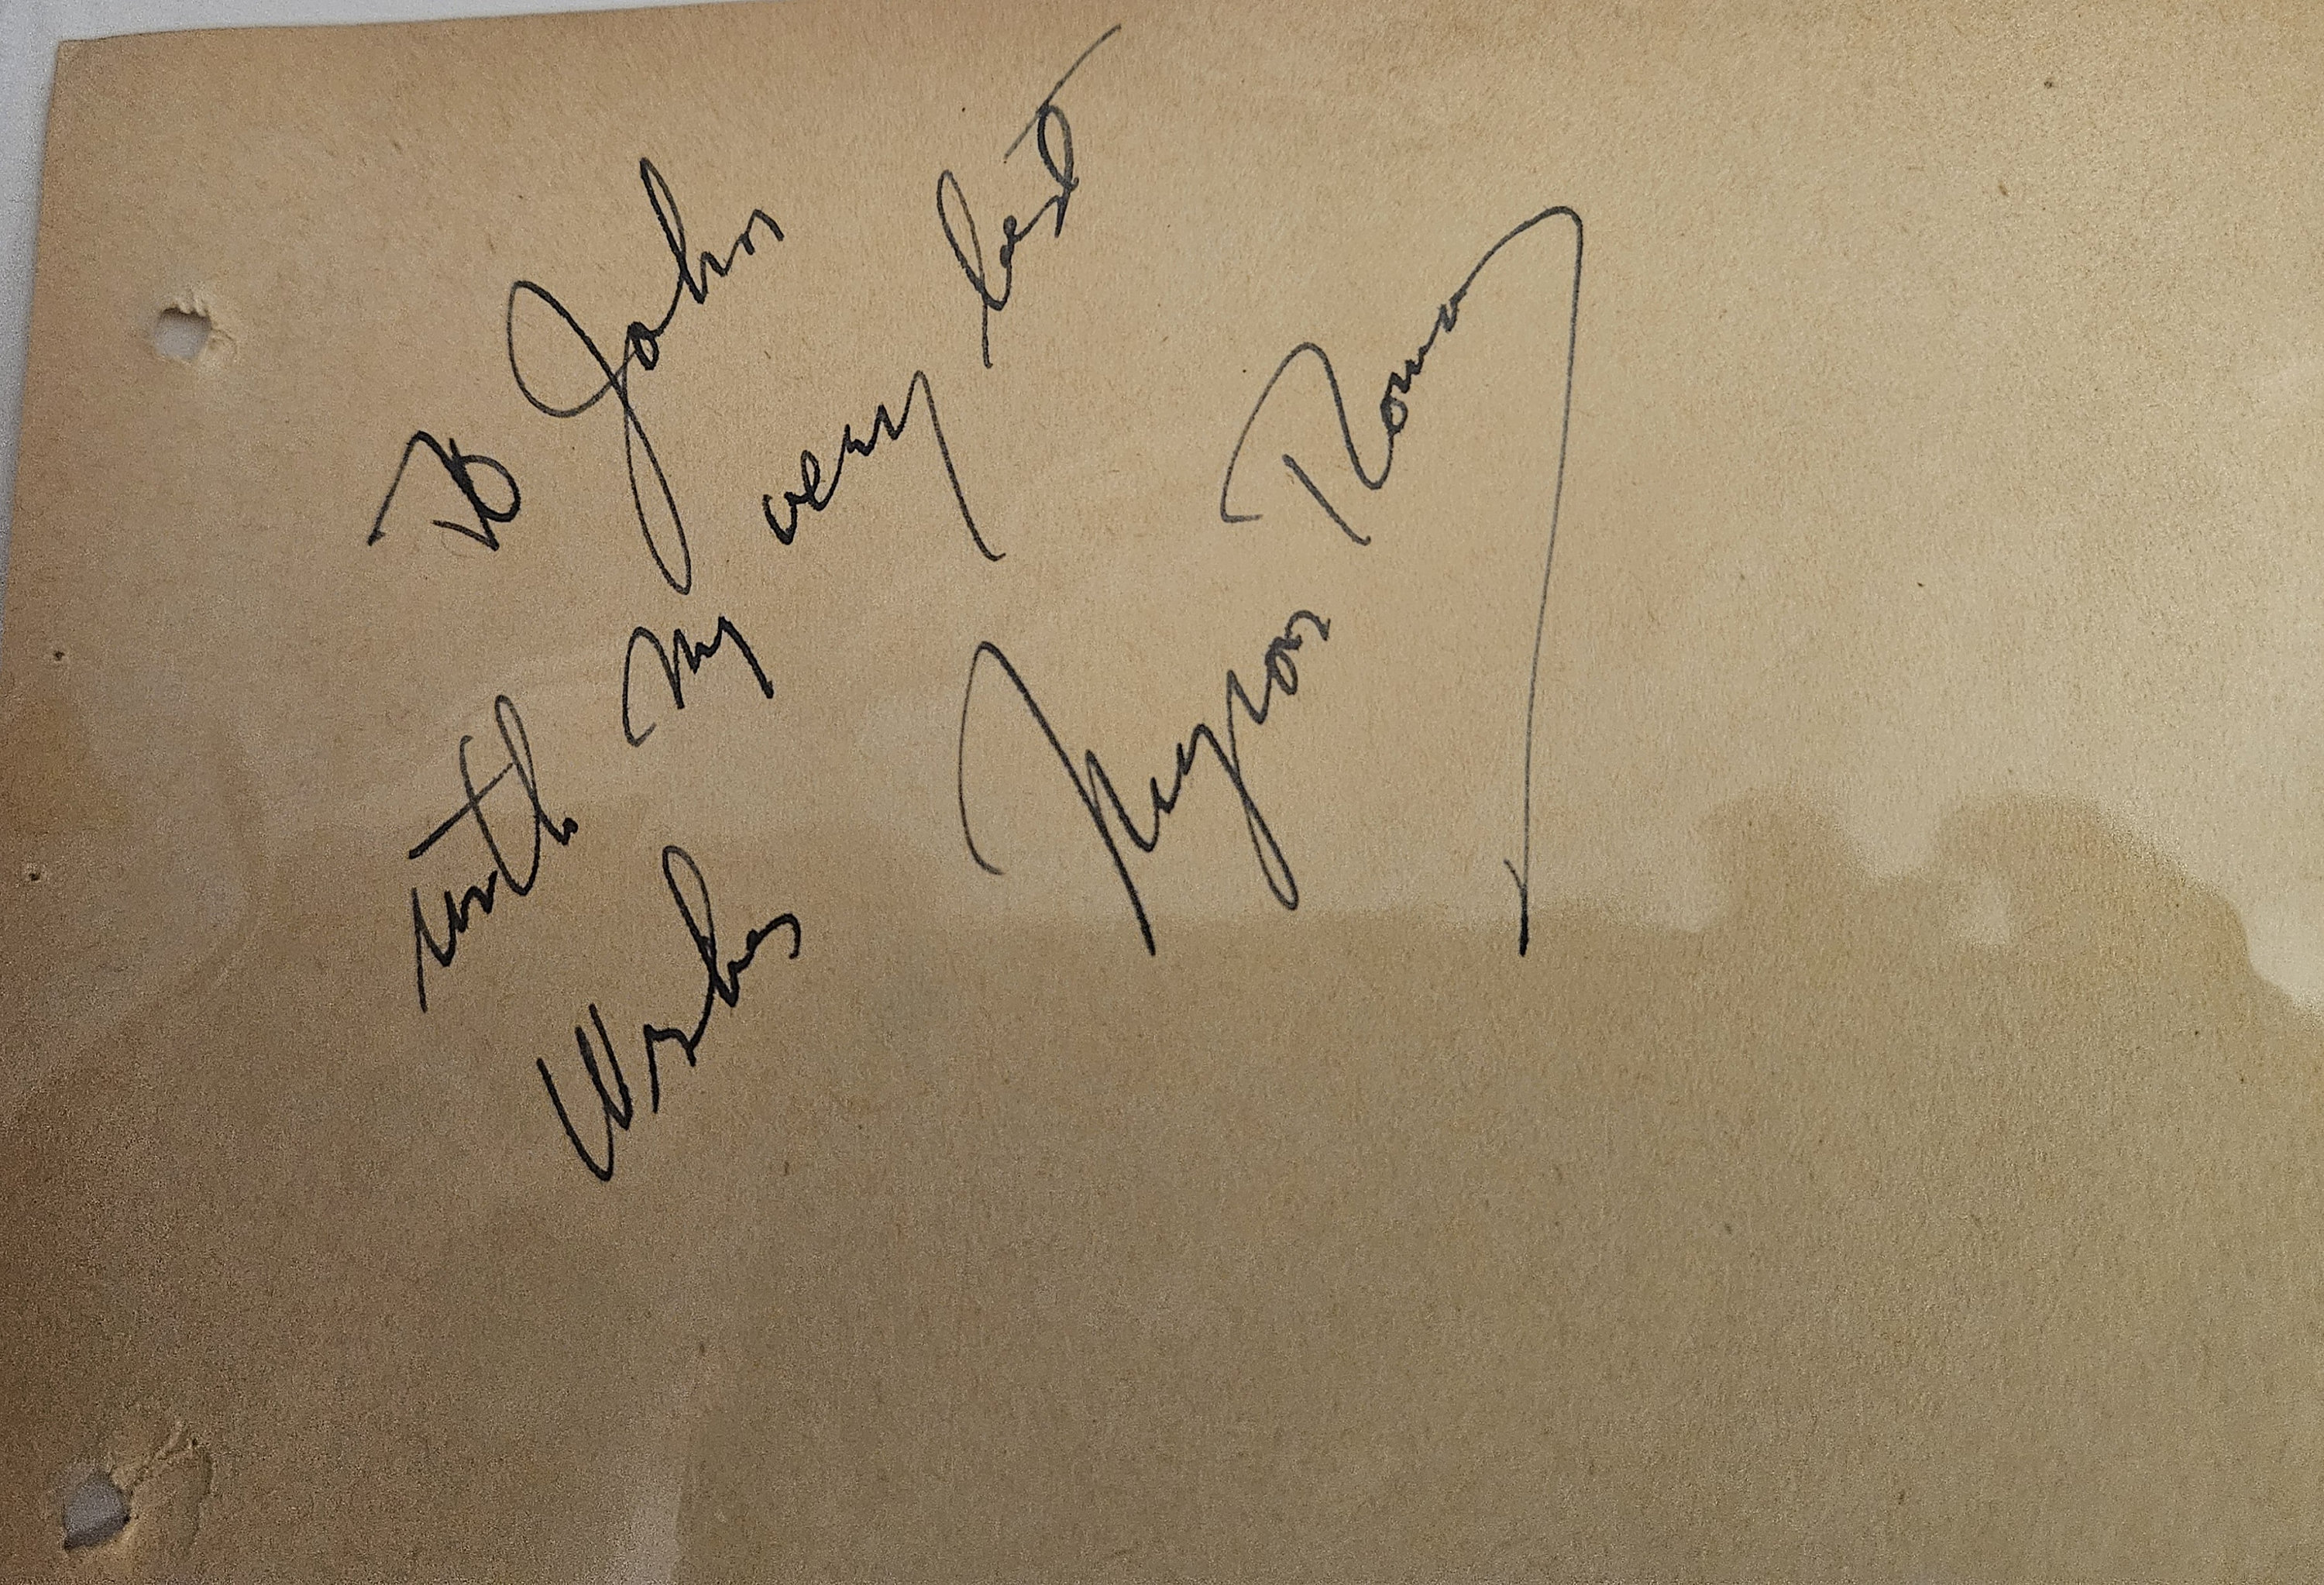 To John
with my very best
Wishes
Myron